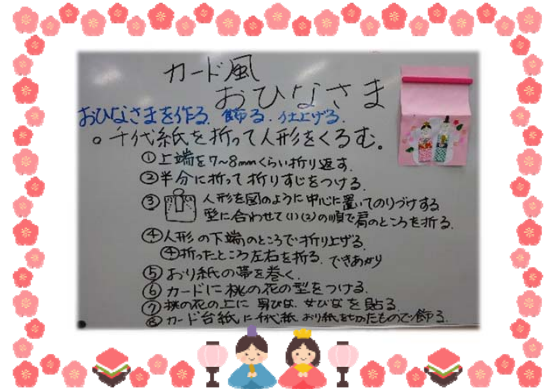 カード風
おひなさま
おひなさまを作る. 飾る. 仕上げる.
○千代紙を折って人形をくるむ。
①上端を7〜8mmくらい折り返す.
②半分に折って折りすじをつける.
③人形を図のように中心に置いてのりづけする
型に合わせて(1)(2)の順で肩のところを折る.
④人形の下端のところで折り上げる.
④折ったところ左右を折る. できあがり
⑤おり紙の帯を巻く.
⑥カードに桃の花の型をつける.
⑦桃の花の上に男びな、女びなを貼る.
⑧カード台紙に千代紙、おり紙を切ったもので飾る.